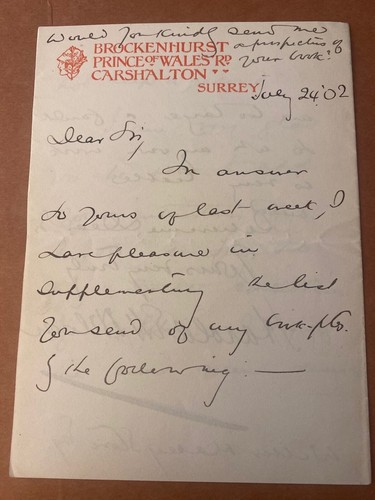 Would you kindly send me
a prospectus of
your book?
BROCKENHURST
PRINCE OF WALES RD
CARSHALTON
SURREY
July 24 '02
Dear Sir,
In answer
to yours of last week, I
have pleasure in
supplementing the list
you send of my book-plts.
by the following:—